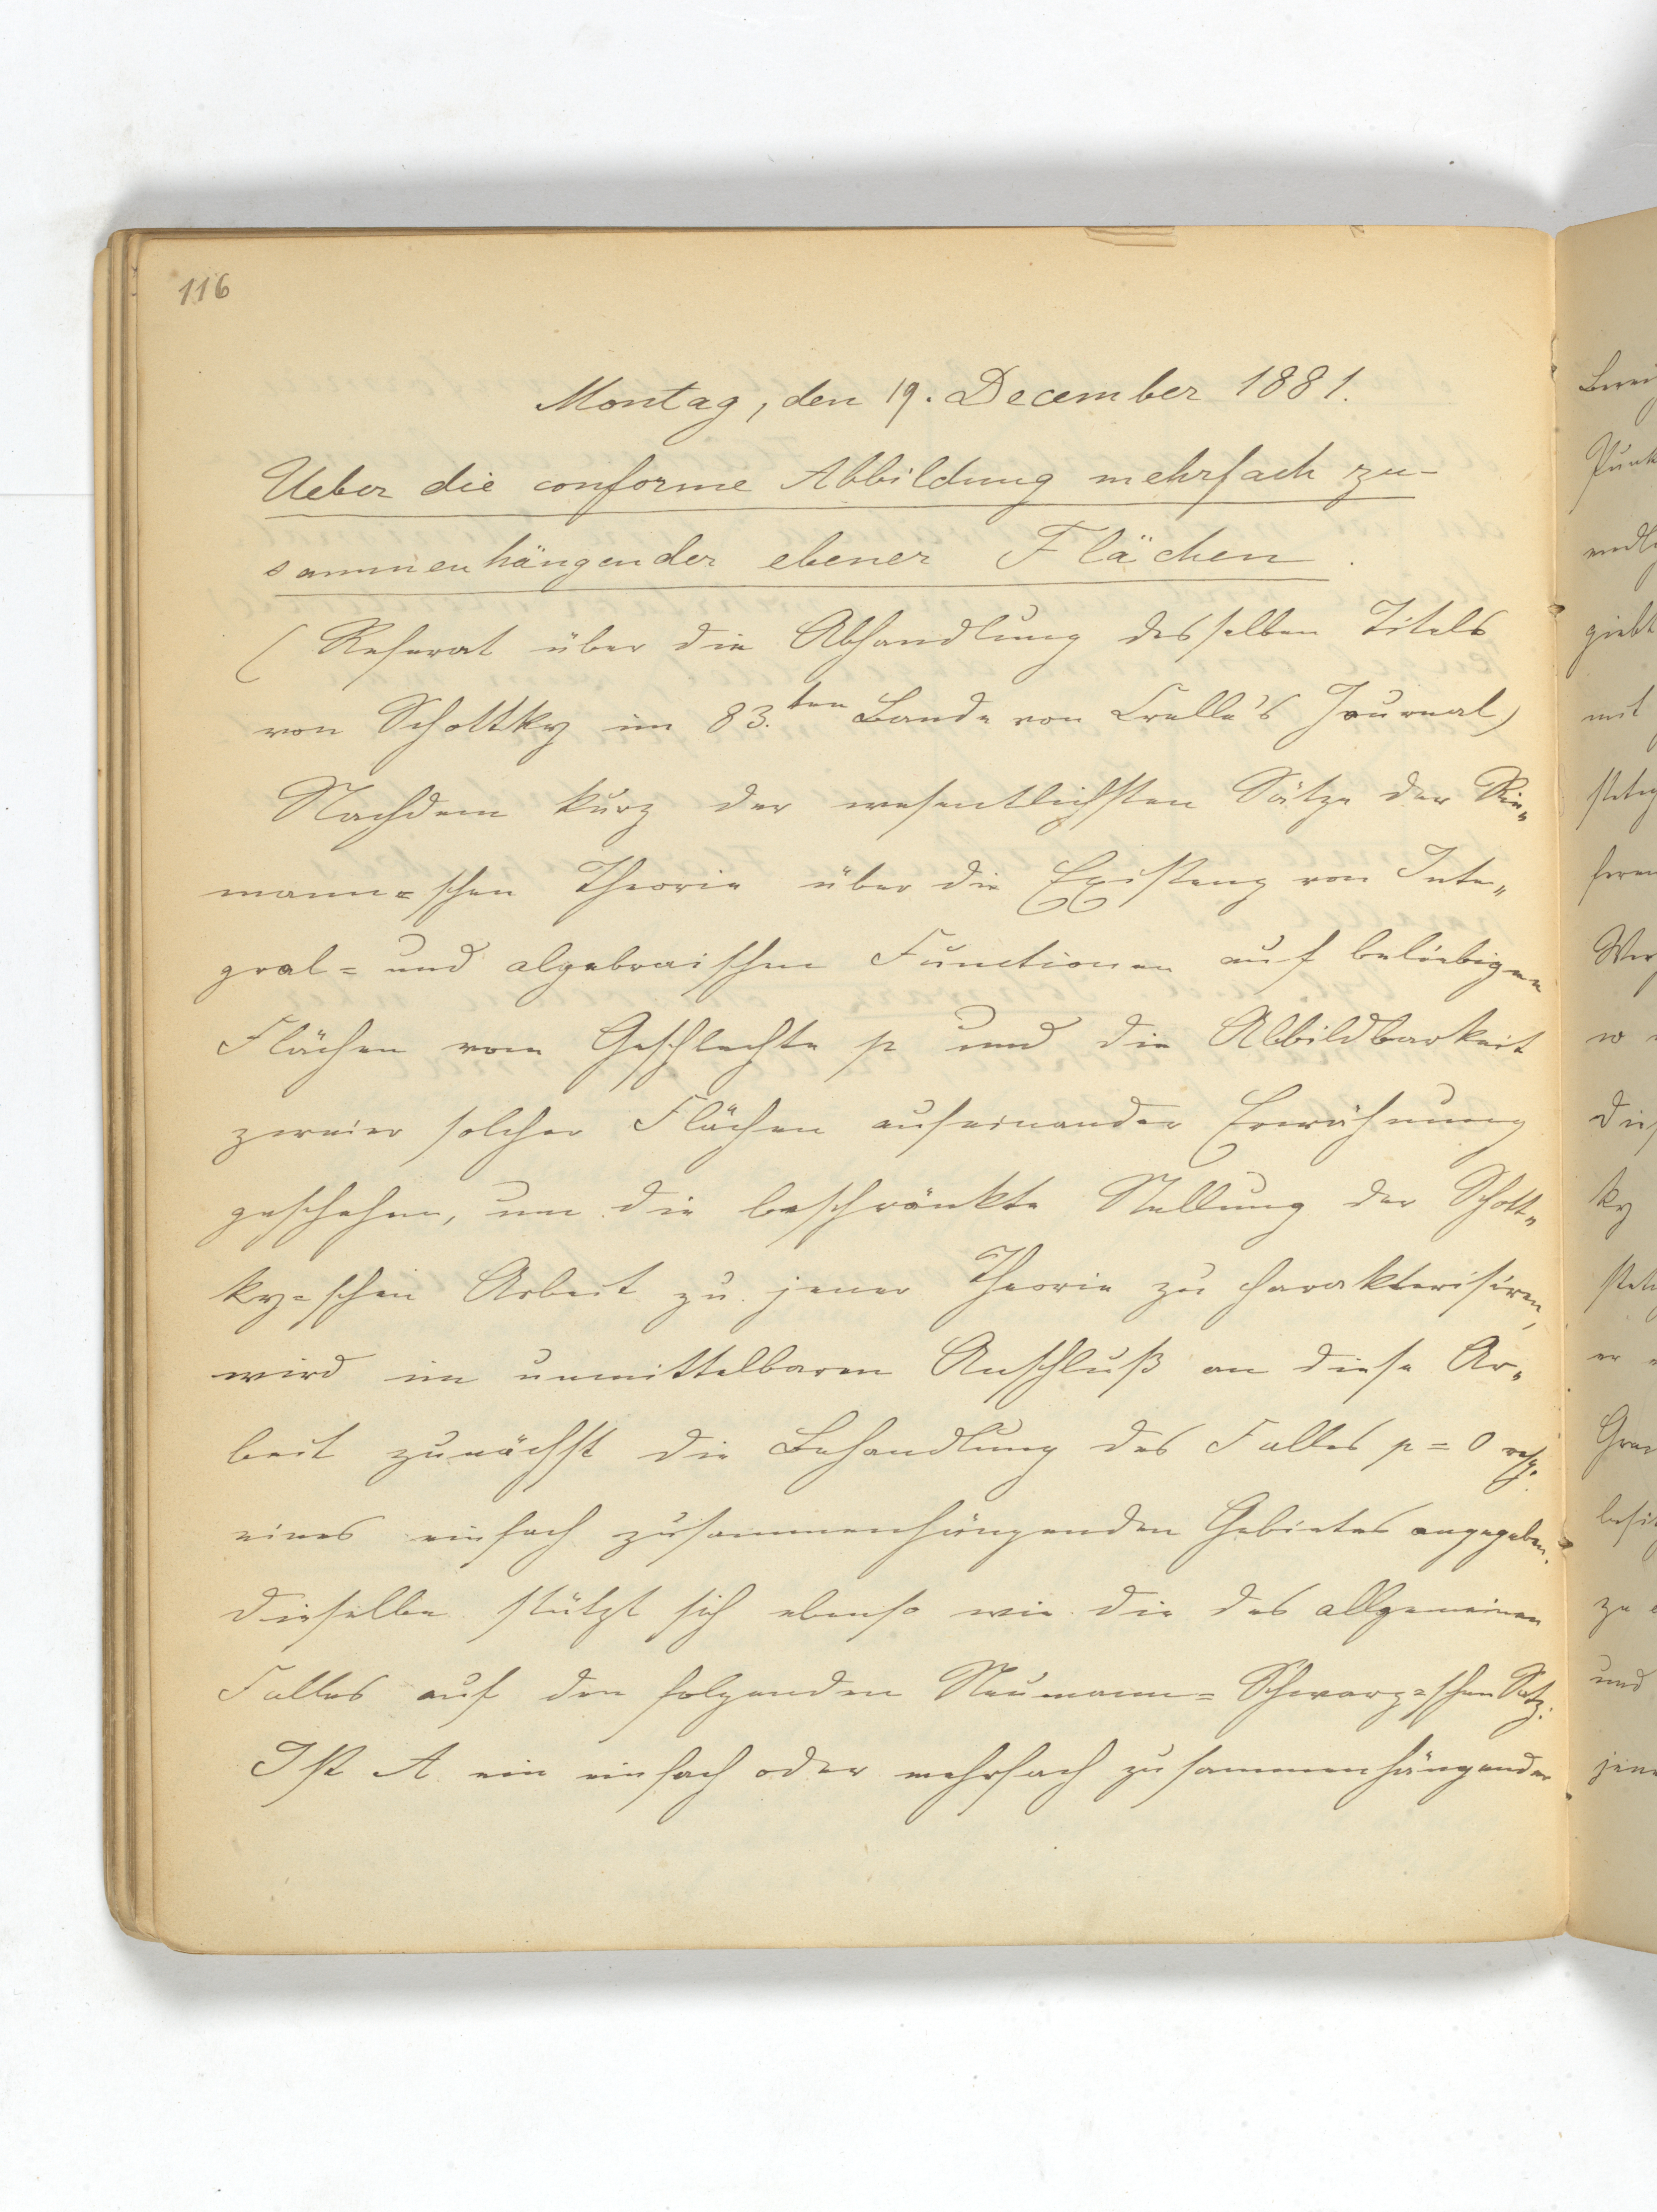 116
Montag, den 19. December 1881.
Ueber die conforme Abbildung mehrfach zu-
sammenhängender ebener Flächen.
(Referat über die Abhandlung desselben Titels
von Schottky im 83.ten Bande von Crelle's Journal)
Nachdem kurz der wesentlichsten Sätze der Rie-
mann=schen Theorie über die Existenz von Inte-
gral= und algebraischen Functionen auf beliebigen
Flächen vom Geschlechte p und die Abbildbarkeit
zweier solcher Flächen aufeinander Erwähnung
geschehen, um die beschränkte Stellung der Schott-
ky=schen Arbeit zu jener Theorie zu charakterisiren,
wird im unmittelbaren Anschluß an diese Ar-
beit zunächst die Behandlung des Falles p = 0 resp.
eines einfach zusammenhängenden Gebietes angegeben.
Dieselbe stützt sich ebenso wie die des allgemeinen
Falles auf den folgenden Neumann=Schwarz=schen Satz:
Ist A ein einfach oder mehrfach zusammenhängender